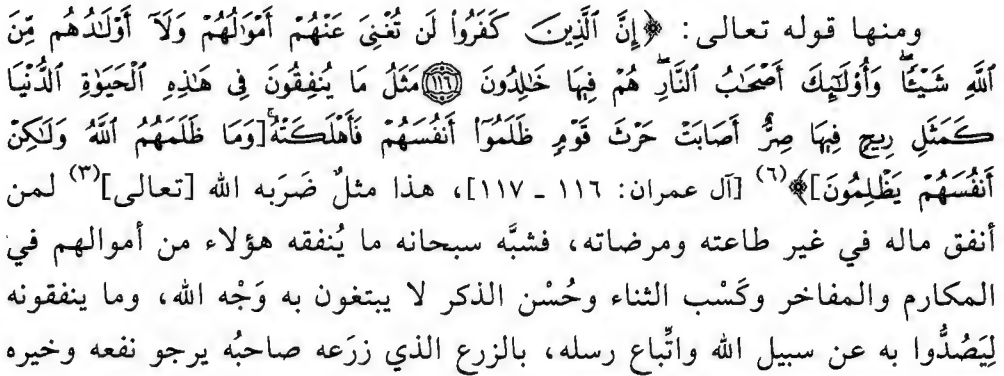 ومنها قوله تعالى: ﴿إِنَّ ٱلَّذِينَ كَفَرُواْ لَن تُغْنِىَ عَنْهُمْ أَمْوَٰلُهُمْ وَلَآ أَوْلَـٰدُهُم مِّنَ
ٱللَّهِ شَيْـًٔاۖ وَأُوْلَـٰٓئِكَ أَصْحَـٰبُ ٱلنَّارِۖ هُمْ فِيهَا خَـٰلِدُونَ ۝١١٦ مَثَلُ مَا يُنفِقُونَ فِى هَـٰذِهِ ٱلْحَيَوٰةِ ٱلدُّنْيَا
كَمَثَلِ رِيحٍ فِيهَا صِرٌّ أَصَابَتْ حَرْثَ قَوْمٍ ظَلَمُوٓاْ أَنفُسَهُمْ فَأَهْلَكَتْهُۚ [وَمَا ظَلَمَهُمُ ٱللَّهُ وَلَـٰكِنْ
أَنفُسَهُمْ يَظْلِمُونَ]﴾(٦) [آل عمران: ١١٦ ـ ١١٧]، هذا مثلٌ ضَرَبه الله [تعالى](٣) لمن
أنفق ماله في غير طاعته ومرضاته، فشبَّه سبحانه ما يُنفقه هؤلاء من أموالهم في
المكارم والمفاخر وكَسْب الثناء وحُسْن الذكر لا يبتغون به وَجْه الله، وما ينفقونه
لِيَصُدُّوا به عن سبيل الله واتِّباع رسله، بالزرع الذي زرَعه صاحبُه يرجو نفعه وخيره